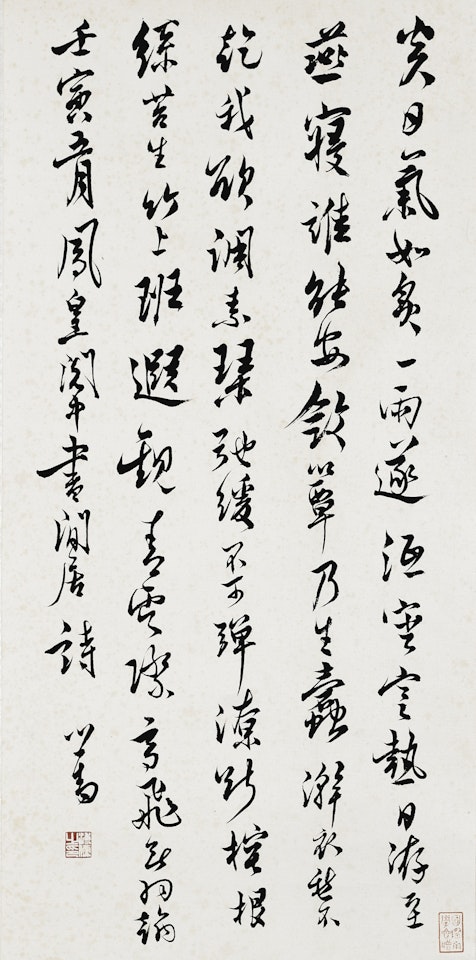 炎日氣如炙一雨遂沍寒寒熱日洊至
燕寢誰能安歛簟乃生蠹澣衣愁不
乾我欲調素琴弛緩不可彈潦斷根
綠苔生竹上班遐觀青雲際高飛無羽翰
壬寅五月鳳皇閣中書閒居詩 心畬